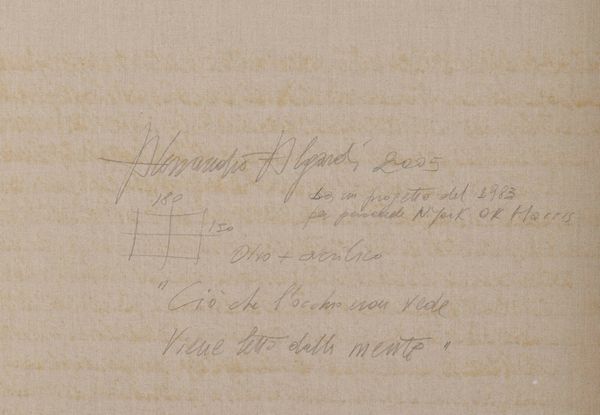 Alessandro Algardi 2005
180
da un progetto del 1983
per N. York OK Harris
150
Olio + acrilico
"Ciò che l'occhio non vede
viene letto dalla mente"